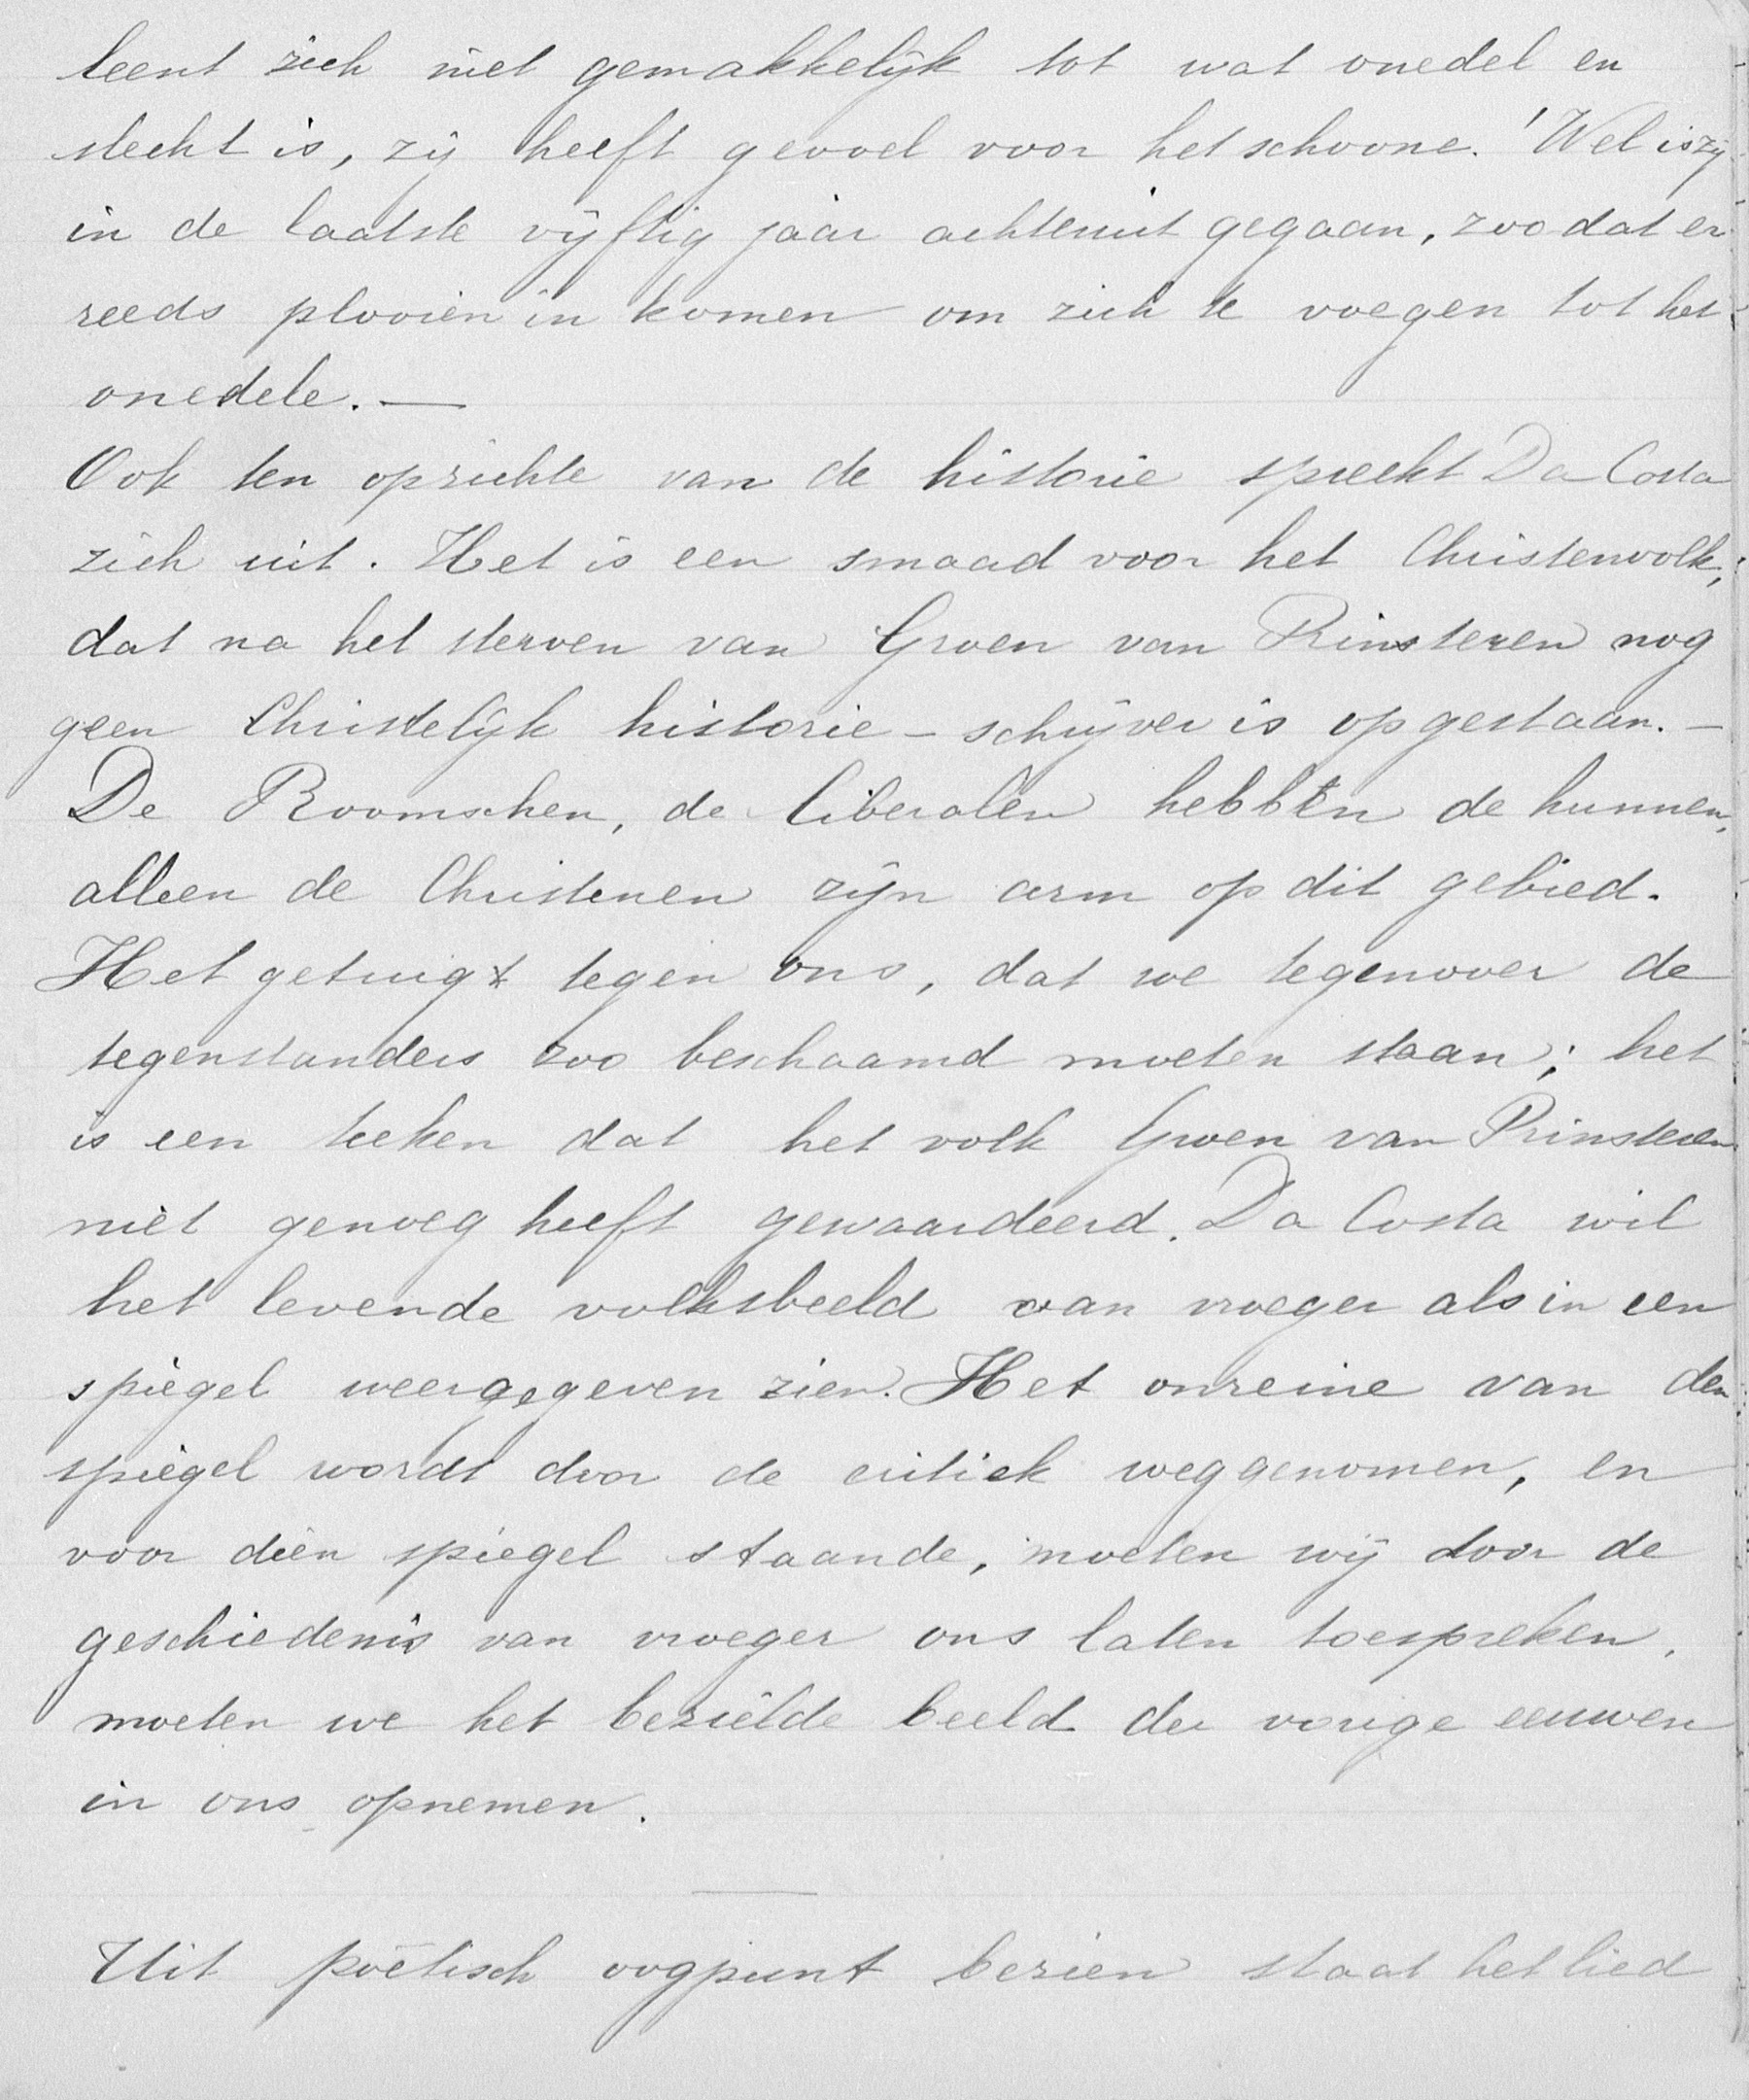 leent zich niet gemakkelijk tot wat onedel en
slecht is, zij heeft gevoel voor het schoone.' Wel is zij
in de laatste vijftig jaar achteruit gegaan, zoodat er
reeds plooien in komen om zich te voegen tot het
onedele. —
Ook ten opzichte van de historie spreekt Da Costa
zich uit. Het is een smaad voor het Christenvolk,
dat na het sterven van Groen van Prinsteren nog
geen Christelijk historie - schrijver is opgestaan. -
De Roomschen, de liberalen hebben de hunnen,
alleen de Christenen zijn arm op dit gebied.
Het getuigt tegen ons, dat we tegenover de
tegenstanders zoo beschaamd moeten staan; het
is een teeken dat het volk Groen van Prinsteren
niet genoeg heeft gewaardeerd. Da Costa wil
het levende volksbeeld van vroeger als in een
spiegel weergegeven zien. Het onreine van den
spiegel wordt door de critiek weggenomen, en
voor dien spiegel staande, moeten wij door de
geschiedenis van vroeger ons laten toespreken,
moeten we het bezielde beeld der vorige eeuwen
in ons opnemen.
Uit poëtisch oogpunt bezien staat het lied